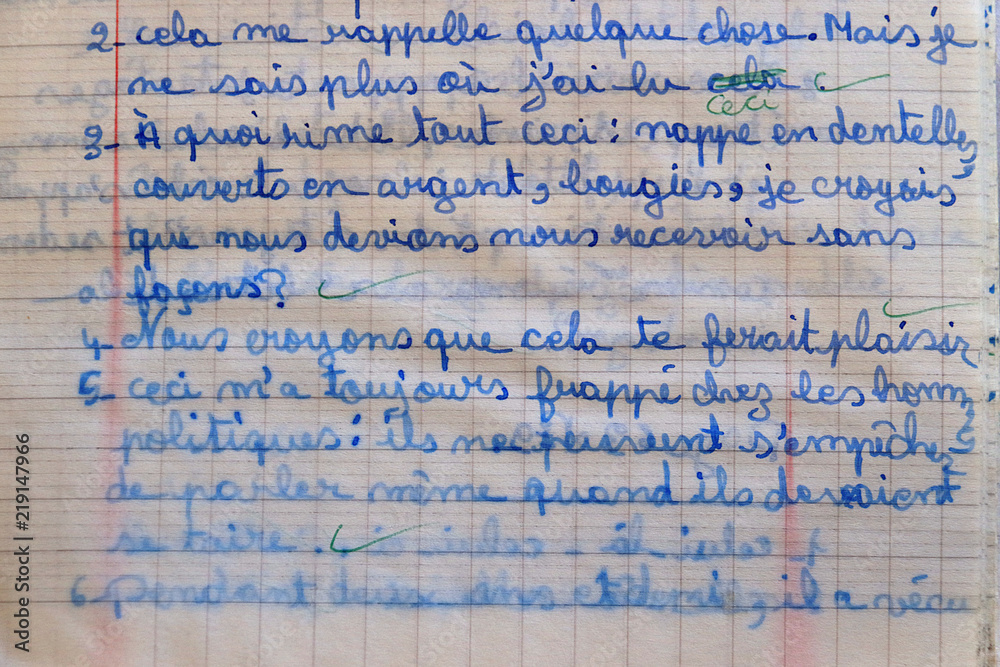 2- cela me rappelle quelque chose. Mais je
ne sais plus où j'ai lu cela .
ceci
3- À quoi rime tout ceci : nappe en dentelle,
couverts en argent, bougies, je croyais
que nous devions nous recevoir sans
façons?
4- Nous croyons que cela te ferait plaisir
5- ceci m'a toujours frappé chez les homm
politiques : ils ne peuvent s'empêche
de parler même quand ils devraient
se taire.
6 Pendant deux ans et demi, il a vécu
Adobe Stock | #219147966